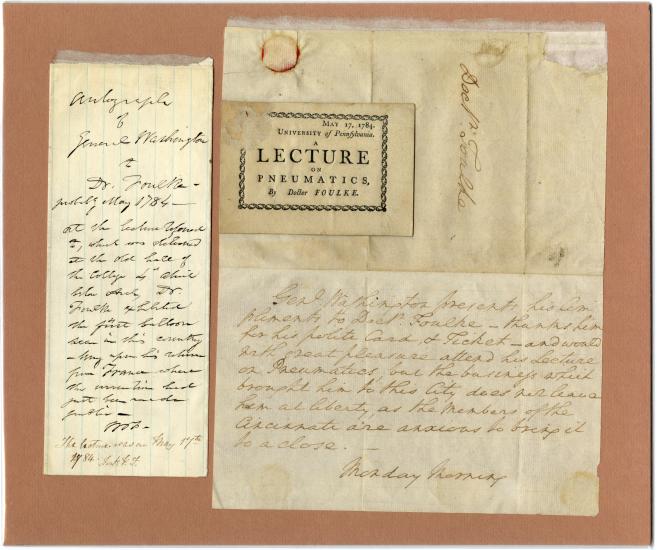 Autograph
of
General Washington
to
Dr. Foulke –
probably May 1784 –
at the lecture referred
to, which was delivered
at the old hall of
the College 4th Street
below Arch, Dr.
Foulke exhibited
the first balloon
seen in this country
– being upon his return
from France where
this invention had
just been made
public –
The lecture was on May 17th
1784.
Doctr Foulke
MAY 17, 1784.
UNIVERSITY of Pennsylvania.
A
LECTURE
ON
PNEUMATICS,
By Doctor FOULKE.
Genl Washington presents his Com
pliments to Doctr Foulke – thanks him
for his polite Card & Ticket – and would
with great pleasure attend his Lecture
on Pneumatics, but the business which
brought him to this City does not leave
him at liberty, as the Members of the
Cincinnati are anxious to bring it
to a close. –
Monday Morning